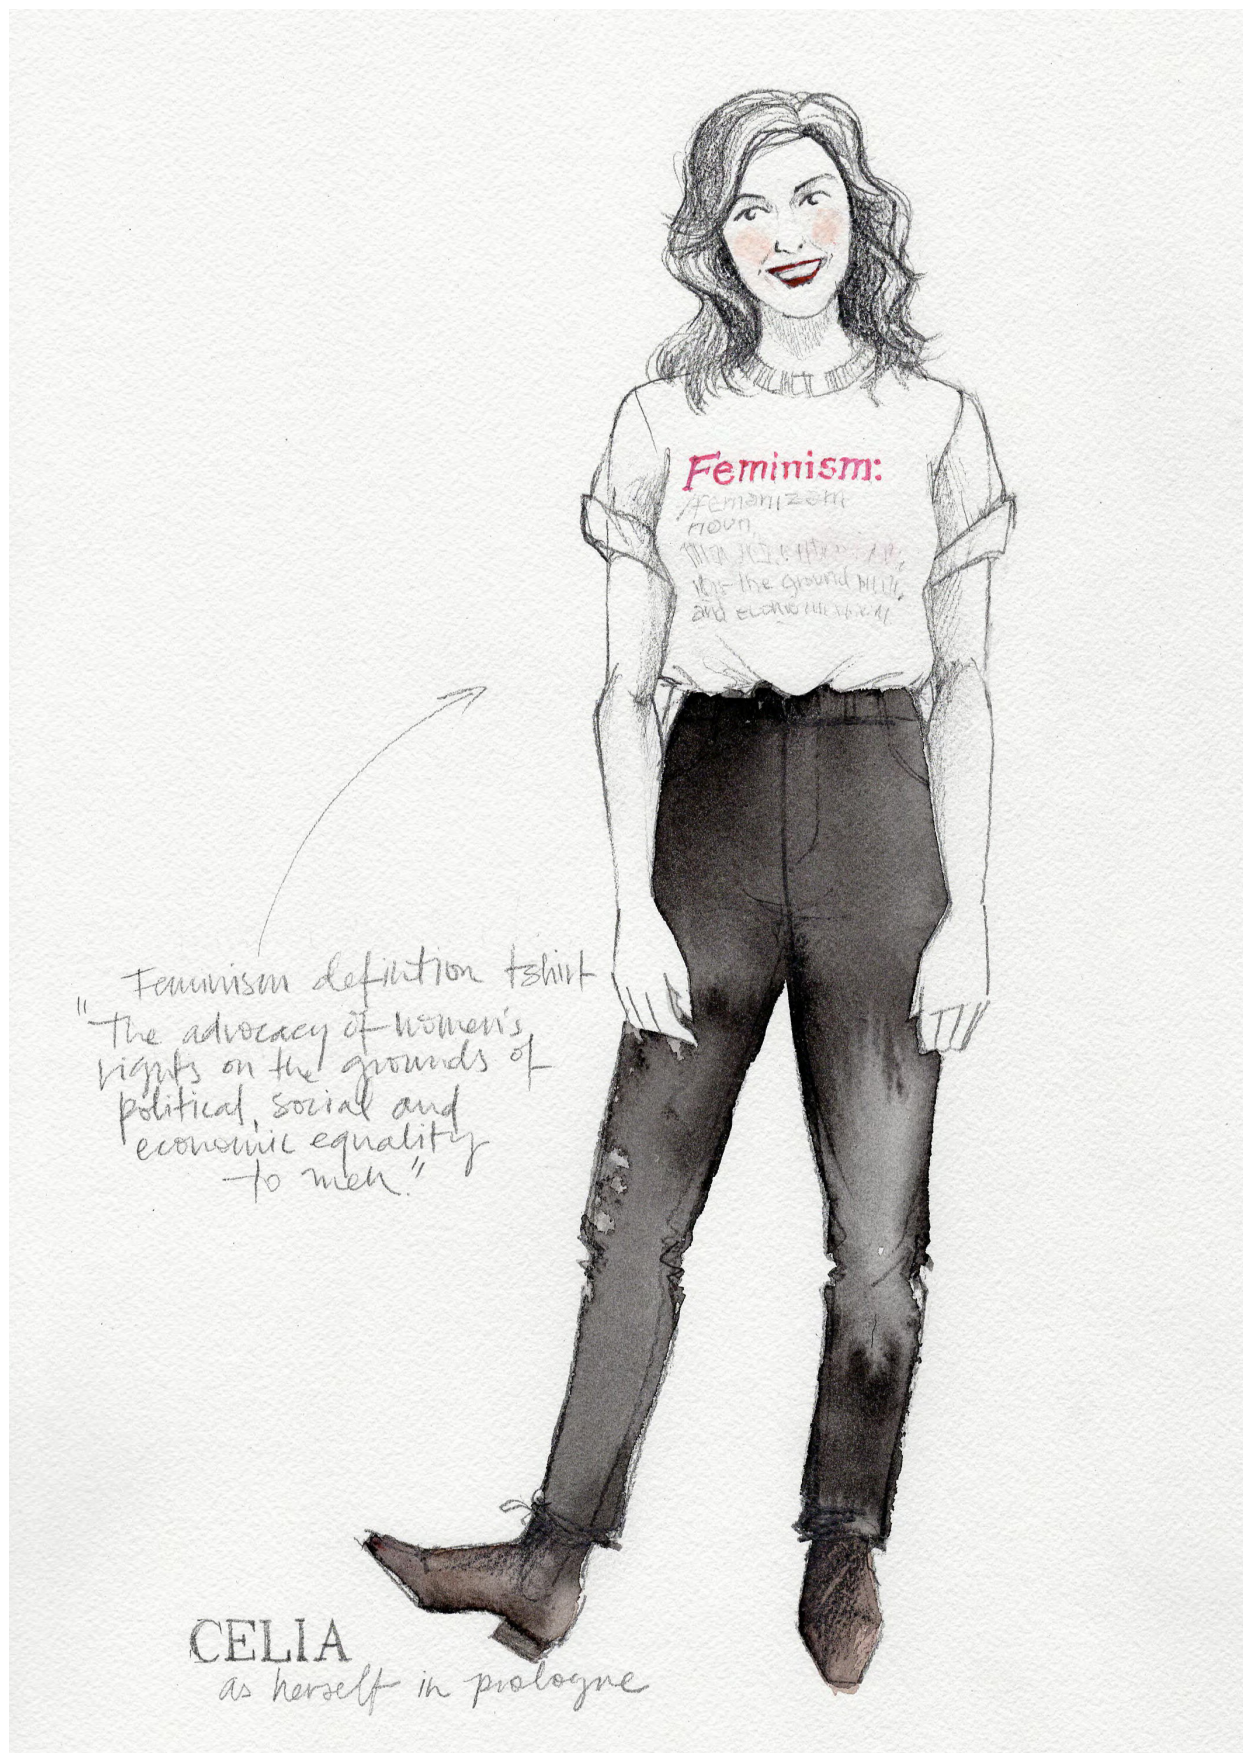 Feminism:
/Femanizem
noun
the ground
and
Feminism defintion tshirt
"The advocacy of women's
rights on the grounds of
political, social and
economic equality
to men."
CELIA
as herself in prologue